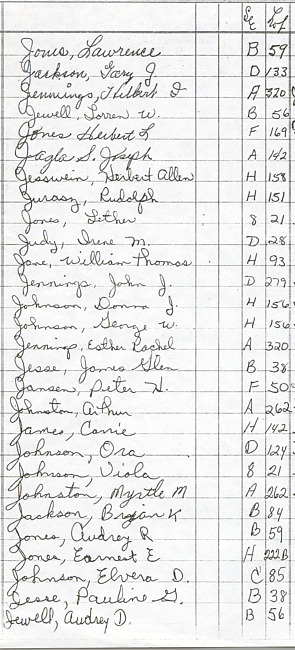 Sc Lot
Jones, Lawrence B 59
Jackson, Gary J. D 133
Jennings, Hilbert I A 320
Jewell, Lorren W. B 56
Jones Herbert L F 169
Jagla S. Joseph A 142
Jesswein, Herbert Allen H 158
Jurasz, Rudolph H 151
Jones, Lether 8 21
Judy, Irene M. D 28
Jane, William Thomas H 93
Jennings, John J. D 279
Johnson, Donna J. H 156
Johnson, George W. H 156
Jennings, Esther Rachel A 320
Jesse, James Glen B 38
Jansen, Peter H. F 50
Johnston, Arthur A 262
James, Carrie H 142
Johnson, Ora D 124
Johnson, Viola 8 21
Johnston, Myrtle M A 262
Jackson, Bryan K B 84
Jones, Audrey R B 59
Jones, Earnest E H 222B
Johnson, Elvera D. C 85
Jesse, Pauline G. B 38
Jewell, Audrey D. B 56